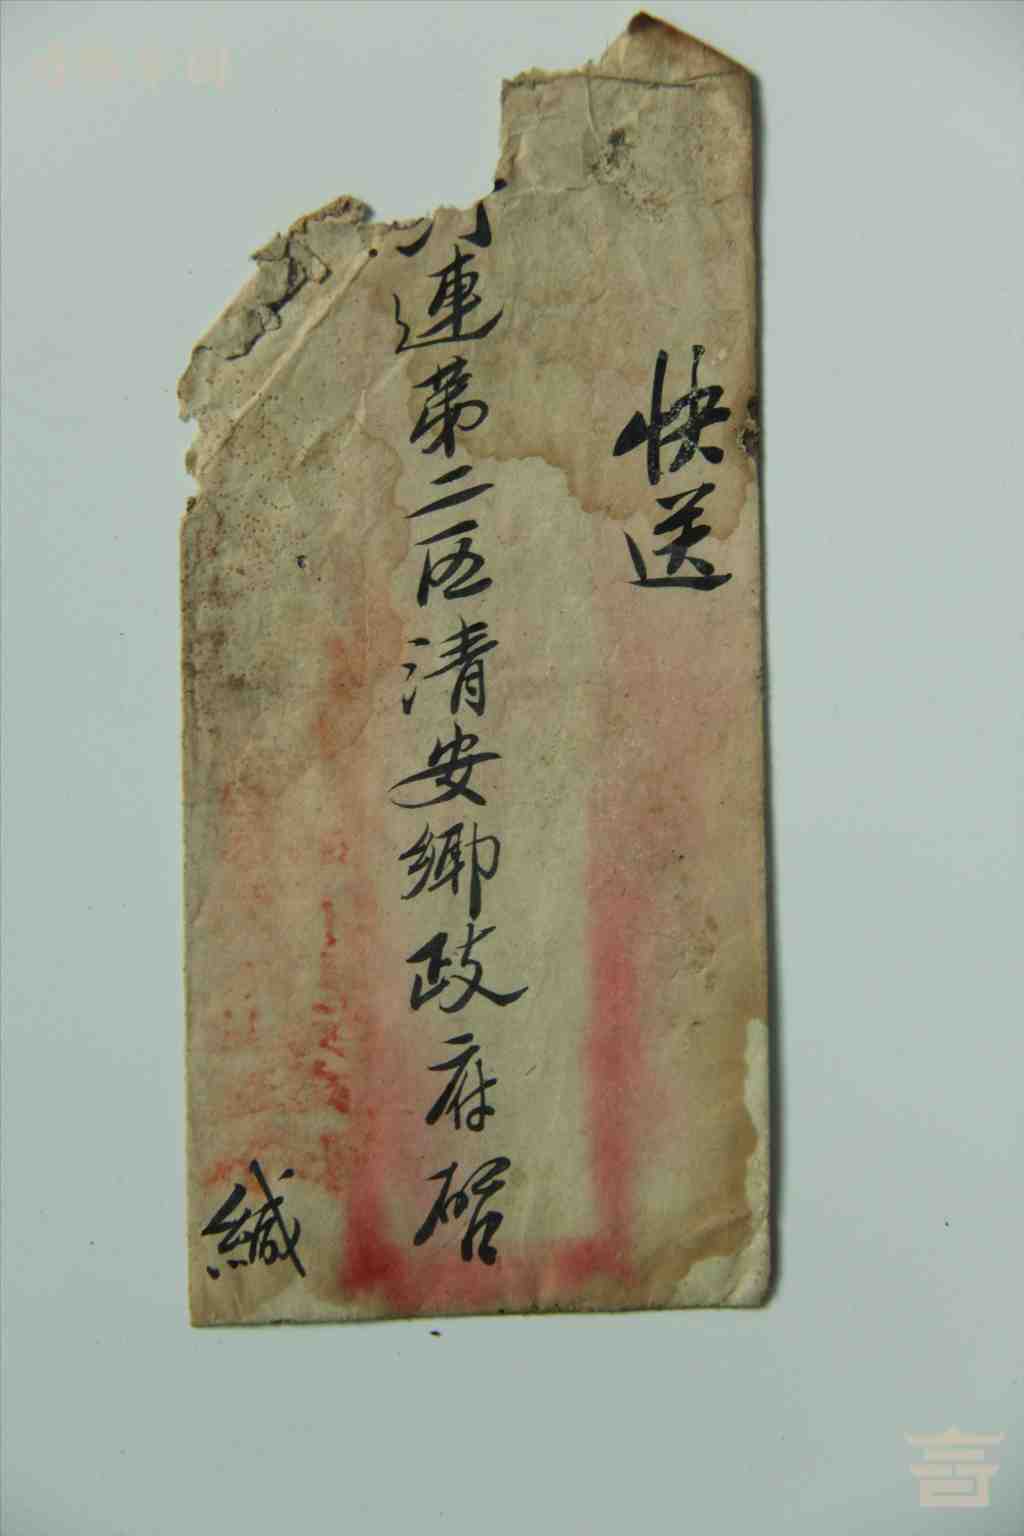 快送
連第二区清安鄉政府啓
緘